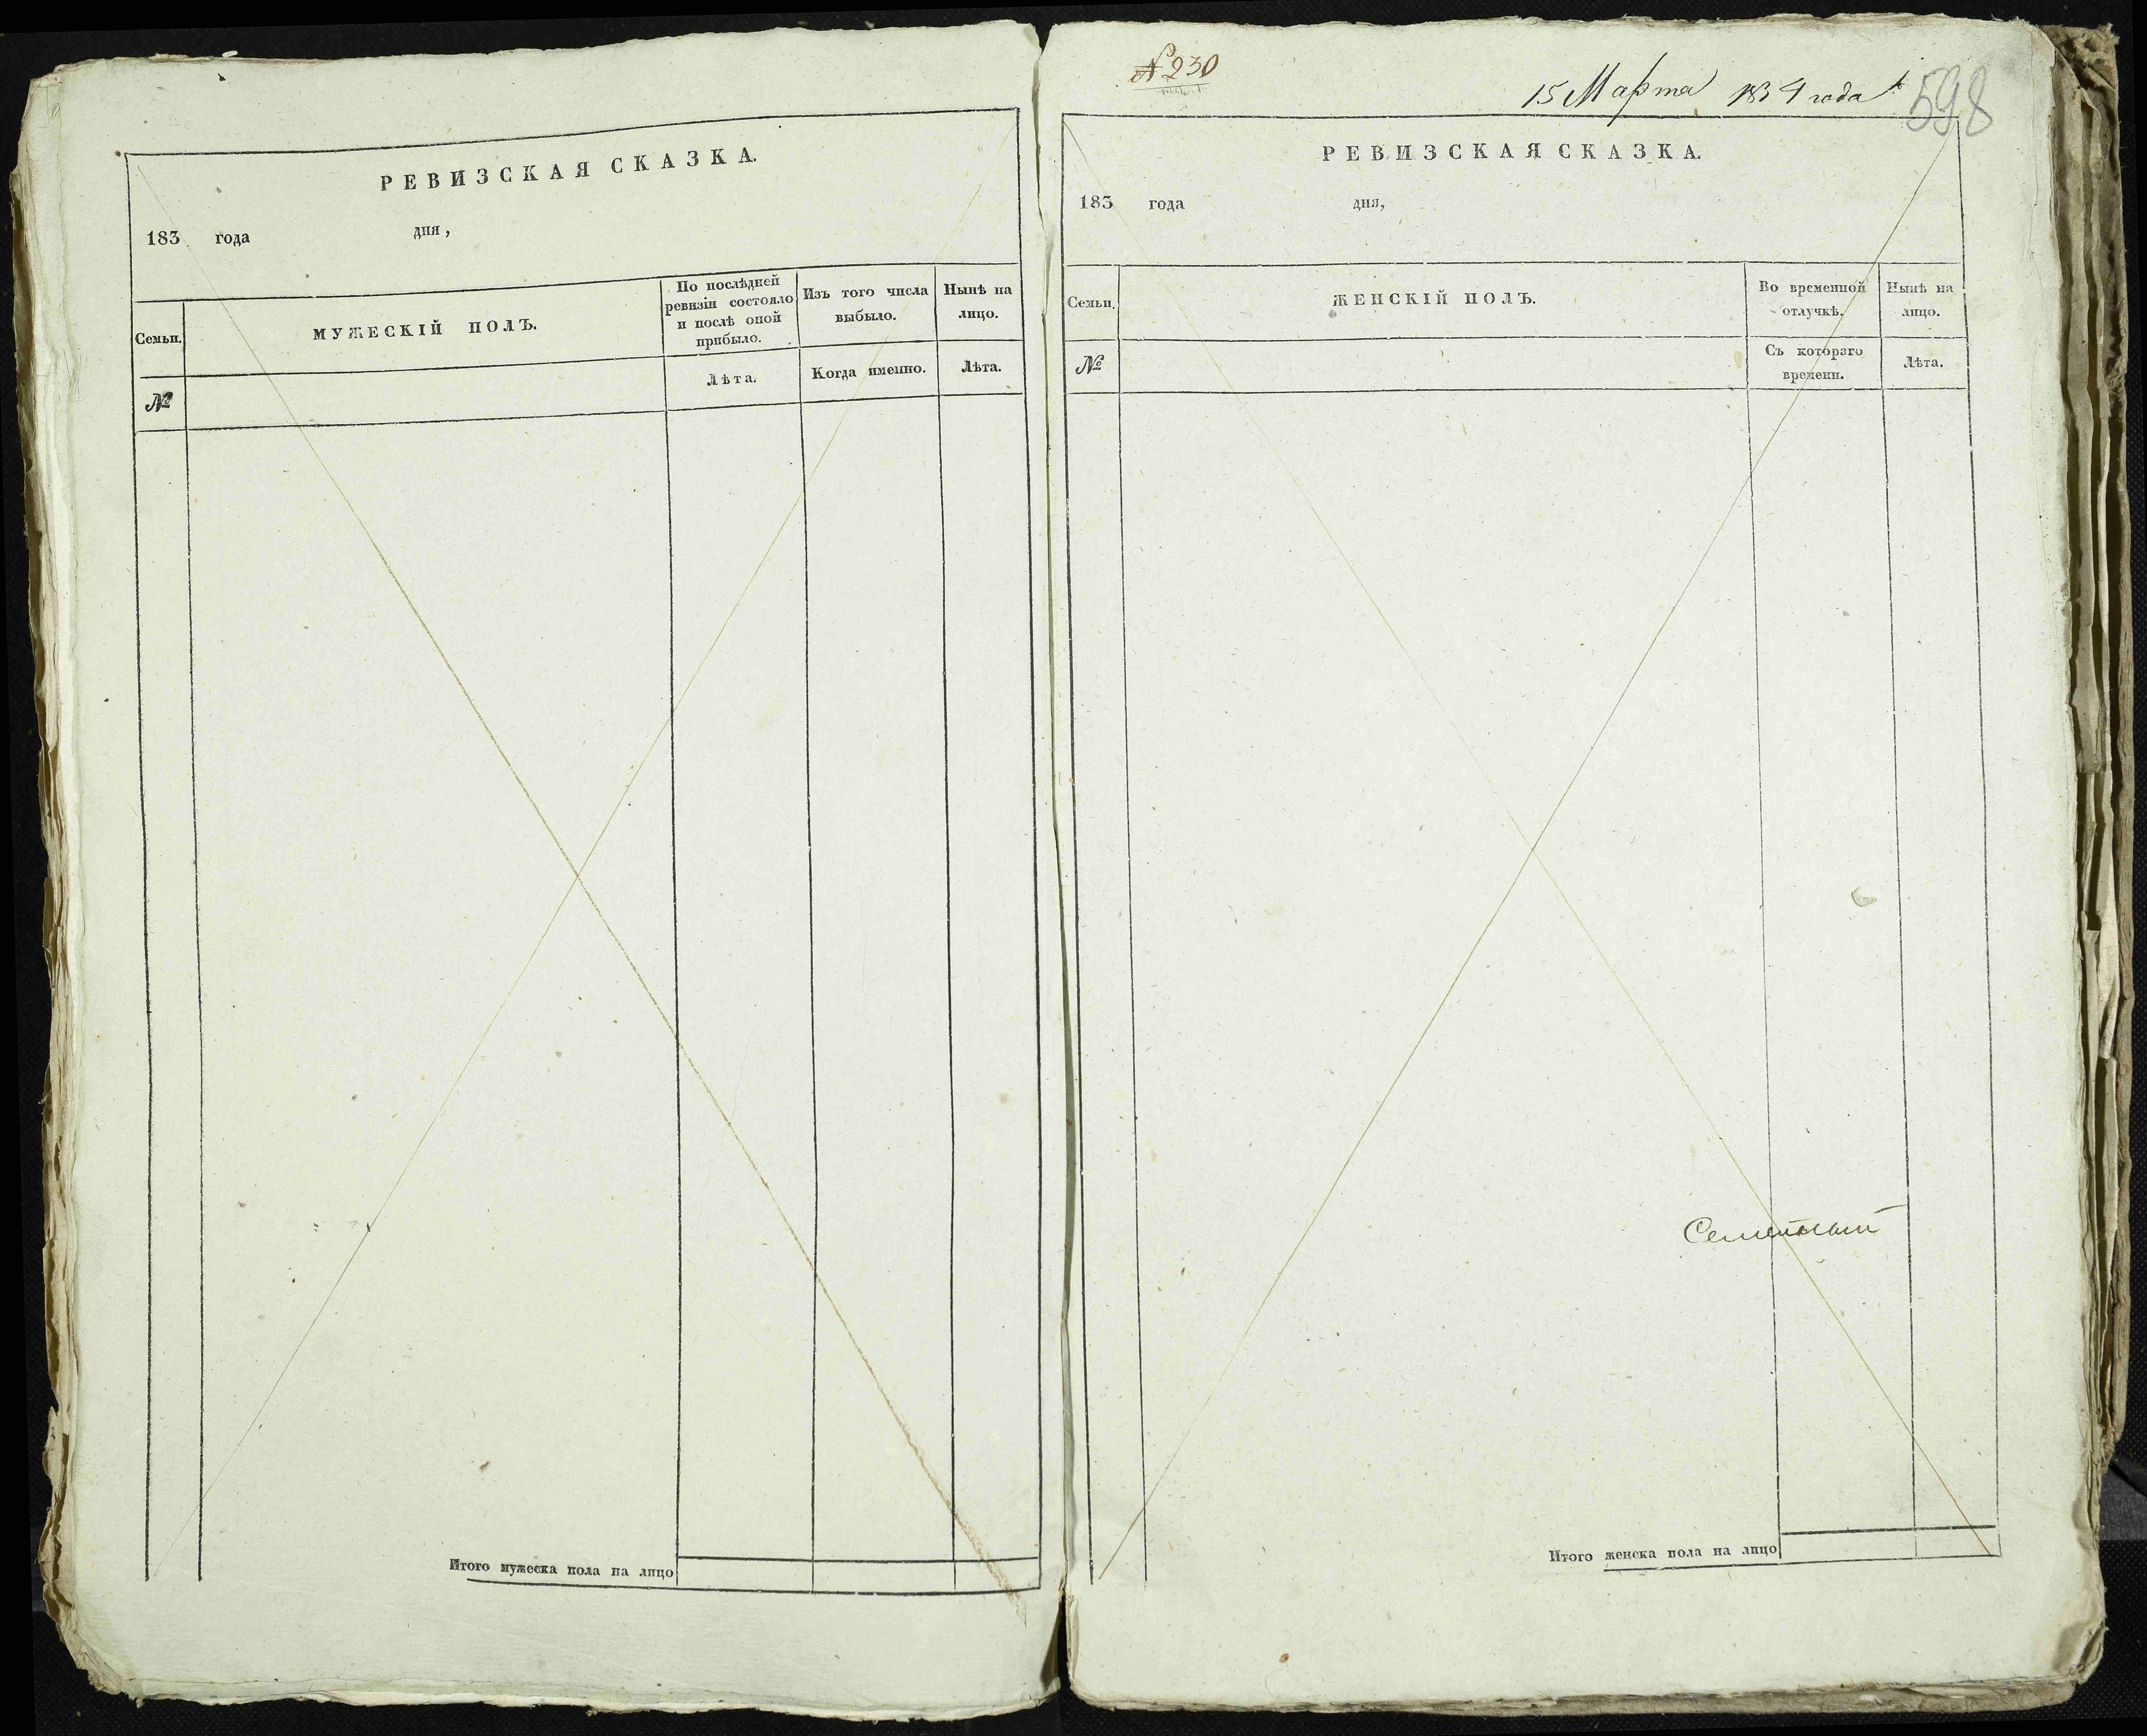 РЕВИЗСКАЯ СКАЗКА.
183 года дня,
Семьи.
МУЖЕСКІЙ ПОЛЪ.
По послѣдней
ревизіи состояло
и послѣ оной
прибыло.
Изъ того числа
выбыло.
Нынѣ на
лицо.
№
Лѣта.
Когда именно.
Лѣта.
Итого мужеска пола на лицо
№ 230
15 Марта 1834 года
598
РЕВИЗСКАЯ СКАЗКА.
183 года дня,
Семьи.
ЖЕНСКІЙ ПОЛЪ.
Во временной
отлучкѣ.
Нынѣ на
лицо.
№
Съ котораго
времени.
Лѣта.
Итого женска пола на лицо